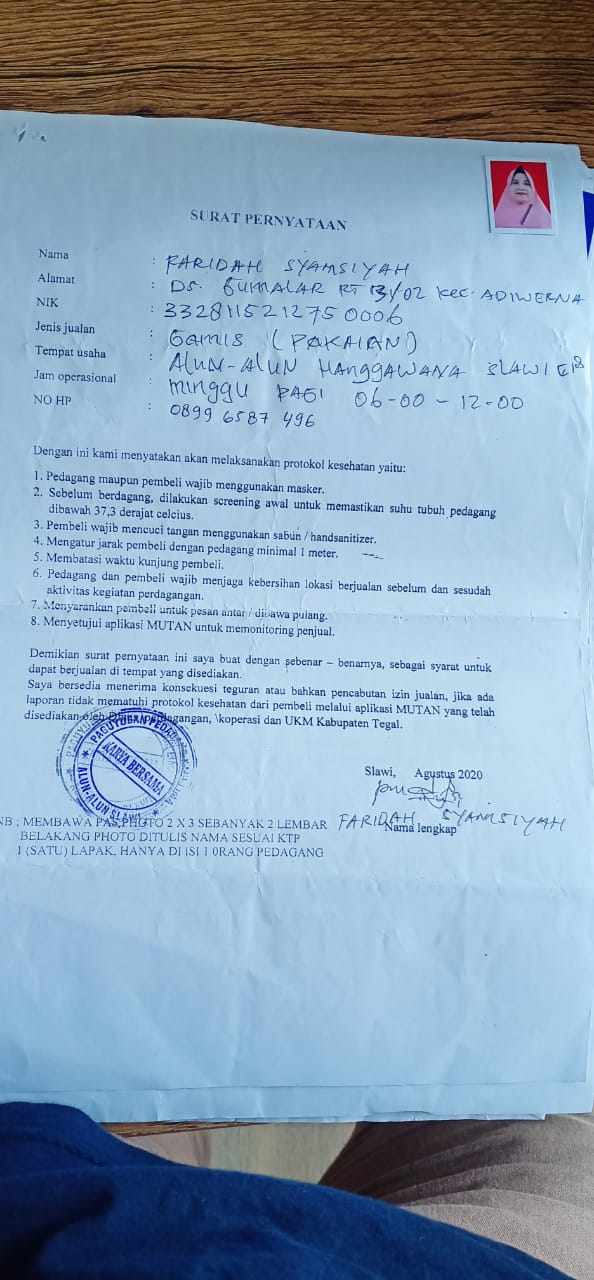 SURAT PERNYATAAN
Nama : FARIDAH SYAMSIYAH
Alamat : DS. GUMALAR RT 13/02 KEC. ADIWERNA
NIK : 3328115212750006
Jenis jualan : GAMIS (PAKAIAN)
Tempat usaha : ALUN-ALUN HANGGAWANA SLAWI
Jam operasional : MINGGU PAGI 06-00 - 12-00
NO HP : 0899 6587 496
Dengan ini kami menyatakan akan melaksanakan protokol kesehatan yaitu:
1. Pedagang maupun pembeli wajib menggunakan masker.
2. Sebelum berdagang, dilakukan screening awal untuk memastikan suhu tubuh pedagang
dibawah 37,3 derajat celcius.
3. Pembeli wajib mencuci tangan menggunakan sabun / handsanitizer.
4. Mengatur jarak pembeli dengan pedagang minimal 1 meter.
5. Membatasi waktu kunjung pembeli.
6. Pedagang dan pembeli wajib menjaga kebersihan lokasi berjualan sebelum dan sesudah
aktivitas kegiatan perdagangan.
7. Menyarankan pembeli untuk pesan antar / dibawa pulang.
8. Menyetujui aplikasi MUTAN untuk memonitoring penjual.
Demikian surat pernyataan ini saya buat dengan sebenar – benarnya, sebagai syarat untuk
dapat berjualan di tempat yang disediakan.
Saya bersedia menerima konsekuesi teguran atau bahkan pencabutan izin jualan, jika ada
laporan tidak mematuhi protokol kesehatan dari pembeli melalui aplikasi MUTAN yang telah
disediakan oleh Dinas perdagangan, \koperasi dan UKM Kabupaten Tegal.
PAGUYUBAN PEDAGANG
KARYA BERSAMA
ALUN-ALUN SLAWI
Slawi, Agustus 2020
FARIDAH SYAMSIYAH
Nama lengkap
NB ; MEMBAWA PAS PHOTO 2 X 3 SEBANYAK 2 LEMBAR
BELAKANG PHOTO DITULIS NAMA SESUAI KTP
1 (SATU) LAPAK, HANYA DI ISI 1 0RANG PEDAGANG